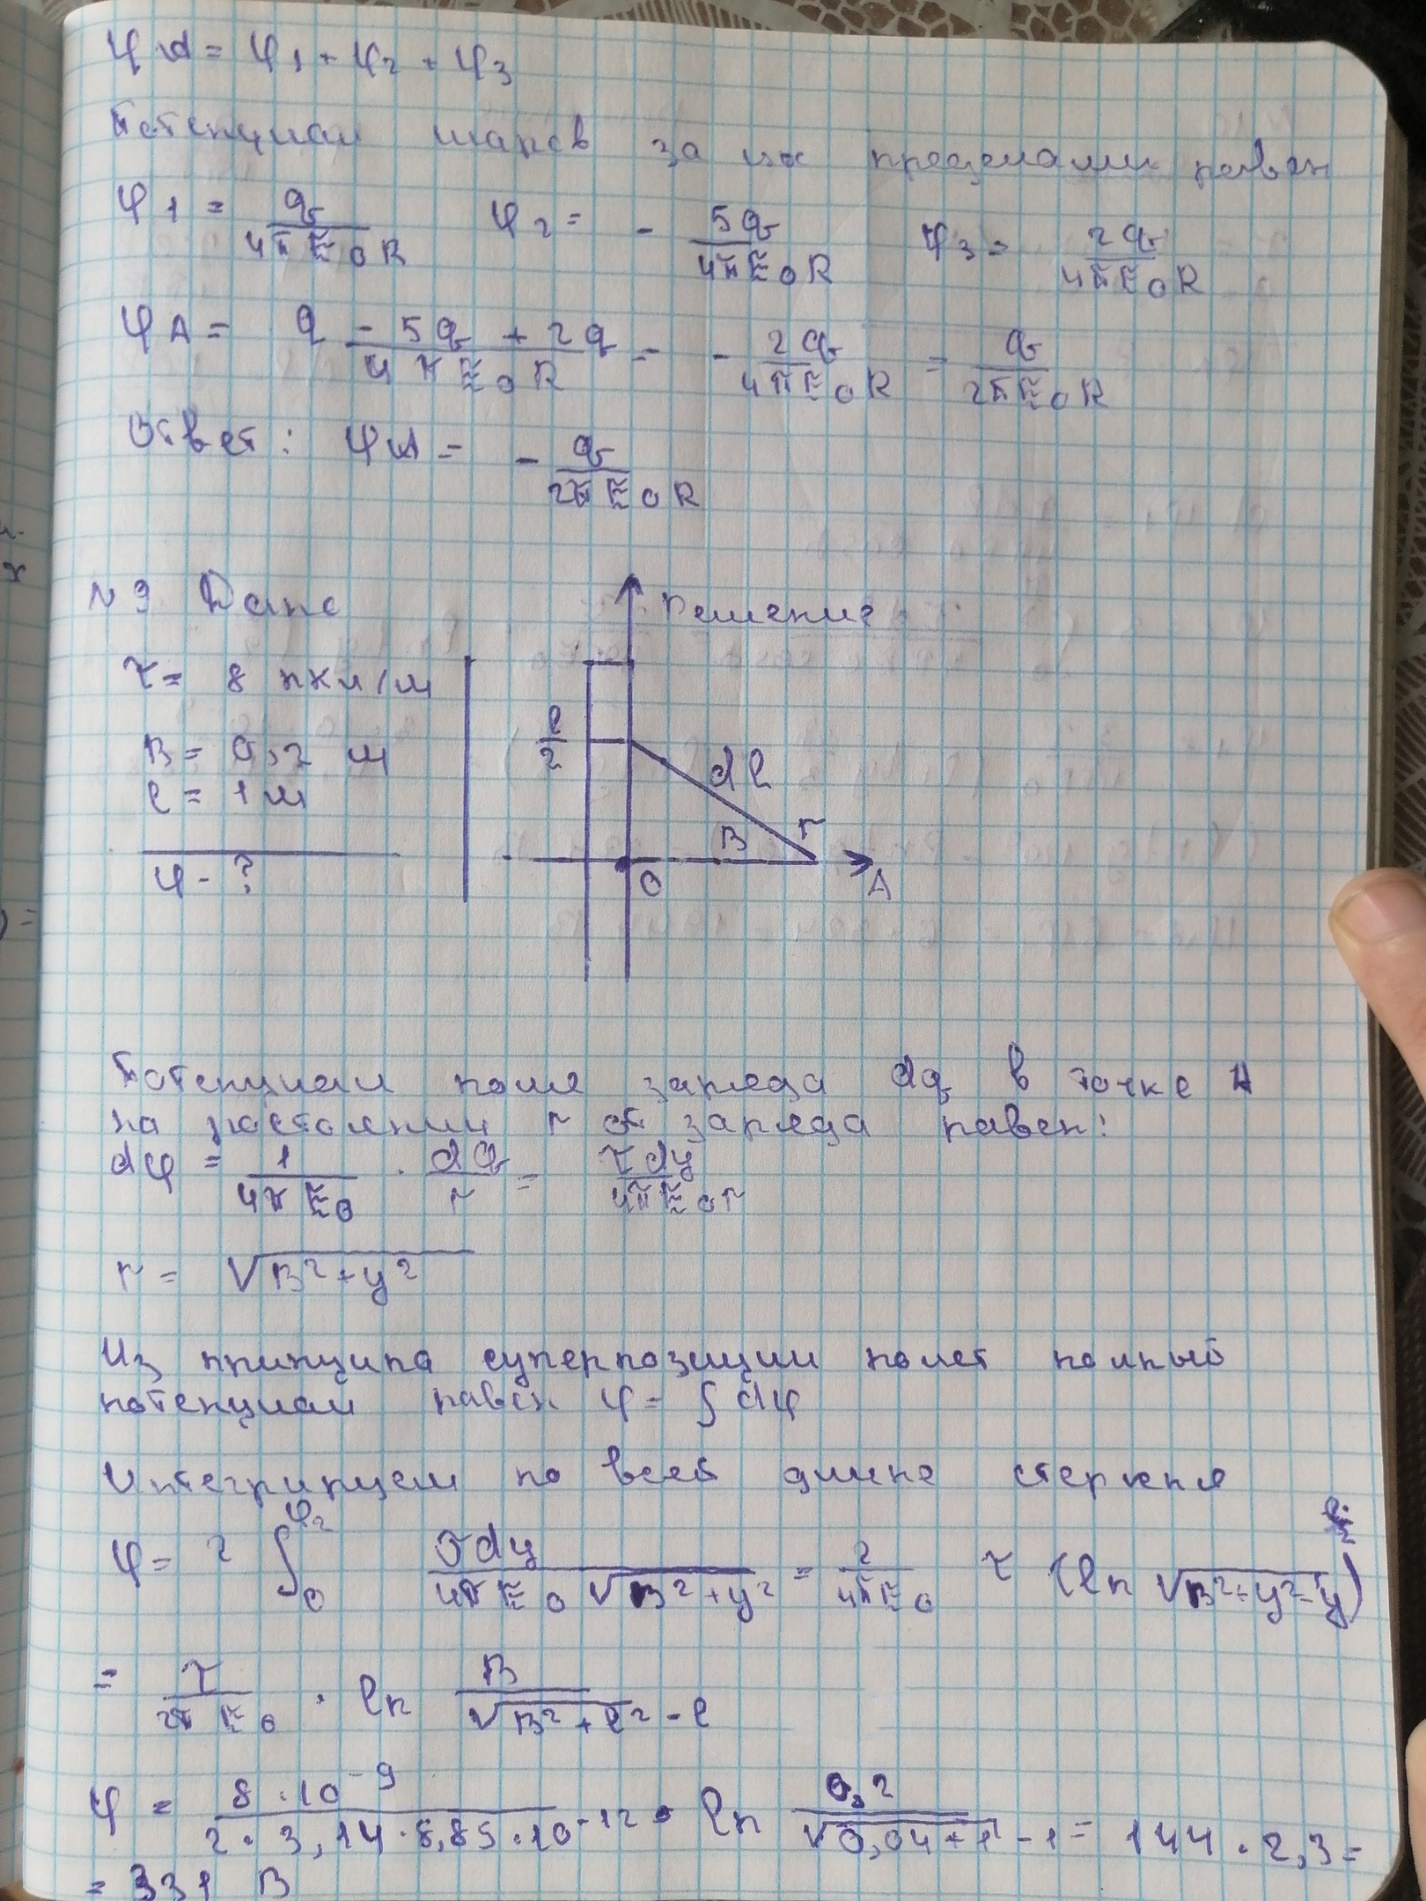 φA = φ1 + φ2 + φ3
Потенциал шаров за их пределами равен
φ1 = q/4πε0R φ2 = - 5q/4πε0R φ3 = 2q/4πε0R
φA = q - 5q + 2q/4πε0R = - 2q/4πε0R = q/2πε0R
Ответ: φA = - q/2πε0R
N 9 Дано Решение
τ = 8 нкл/м
B = 0,2 м
l = 1 м
φ - ?
l/2
dl
B r
O A
Потенциал поля заряда dq в точке A
на расстоянии r от заряда равен:
dφ = 1/4πε0 · dq/r = τdy/4πε0r
r = √B²+y²
Из принципа суперпозиции полей полный
потенциал равен φ = ∫ dφ
Интегрируем по всей длине стержня
φ = 2 ∫0 σdy/4πε0 √B²+y² = 2/4πε0 τ (ln √B²+y²-y)
= τ/2πε0 · ln B/√B²+l² - l
φ = 8·10⁻⁹/2·3,14·8,85·10⁻¹² · ln 0,2/√0,04+1 - 1 = 144 · 2,3 =
= 331 В